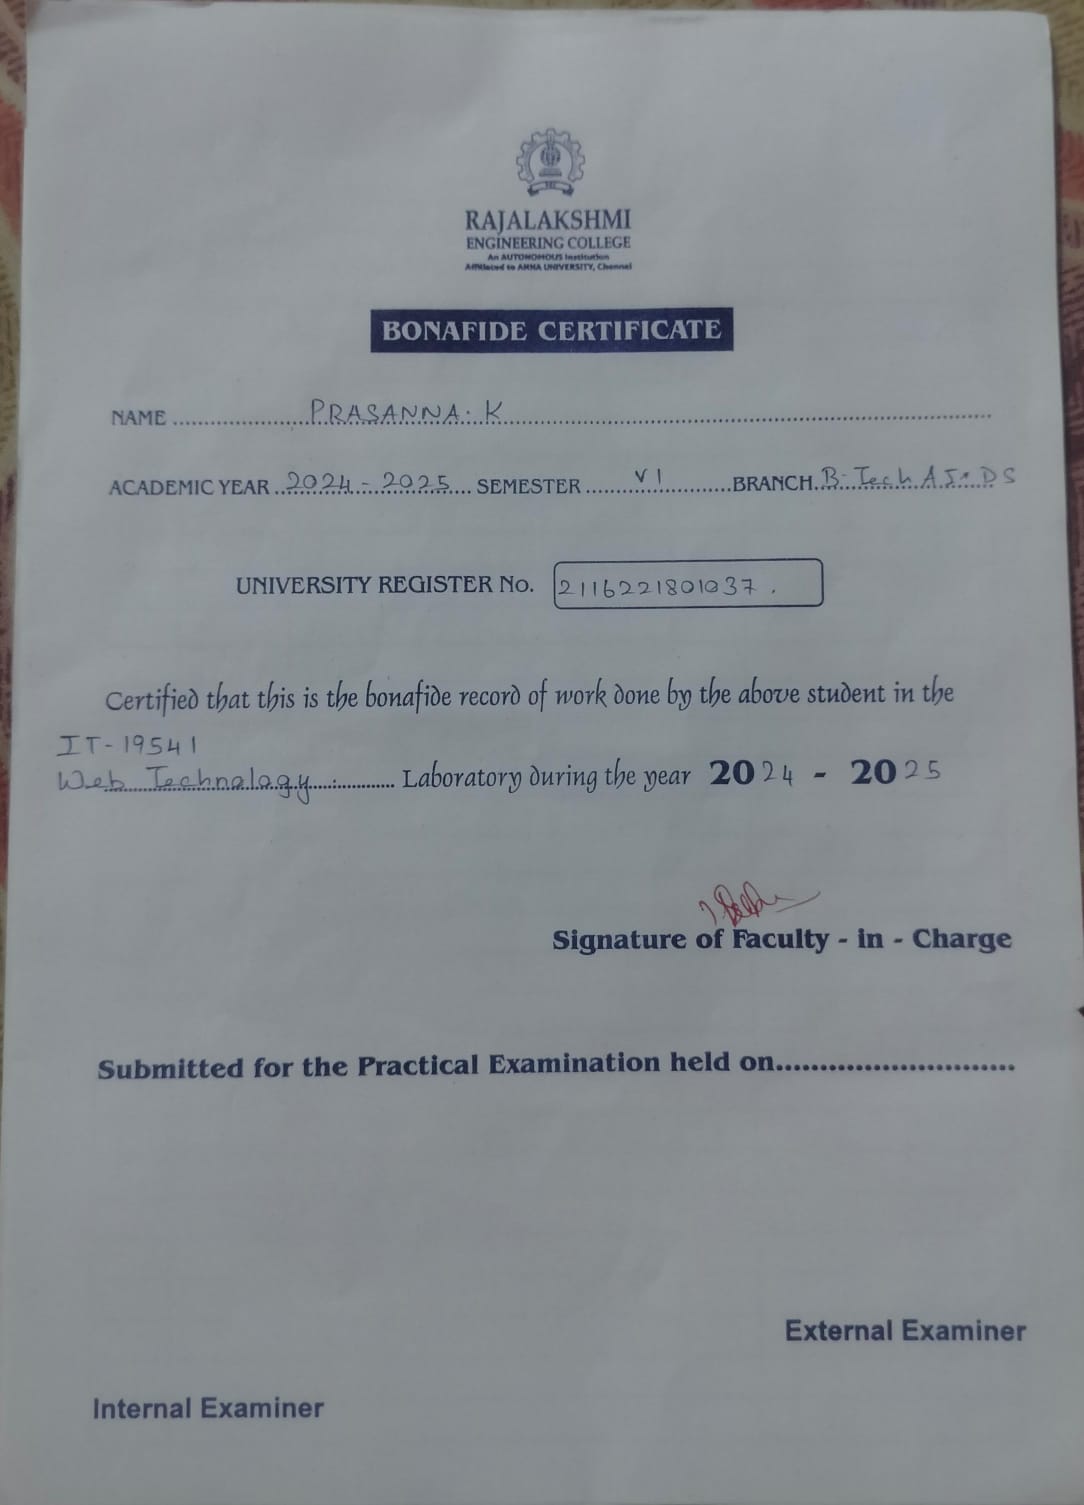 RAJALAKSHMI
ENGINEERING COLLEGE
An AUTONOMOUS Institution
Affiliated to ANNA UNIVERSITY, Chennai
BONAFIDE CERTIFICATE
NAME PRASANNA. K
ACADEMIC YEAR 2024 - 2025 SEMESTER VI BRANCH B-Tech AI DS
UNIVERSITY REGISTER No. 2116221801037.
Certified that this is the bonafide record of work done by the above student in the
IT-19541
Web Technology Laboratory during the year 2024 - 2025
Signature of Faculty - in - Charge
Submitted for the Practical Examination held on...........................
External Examiner
Internal Examiner